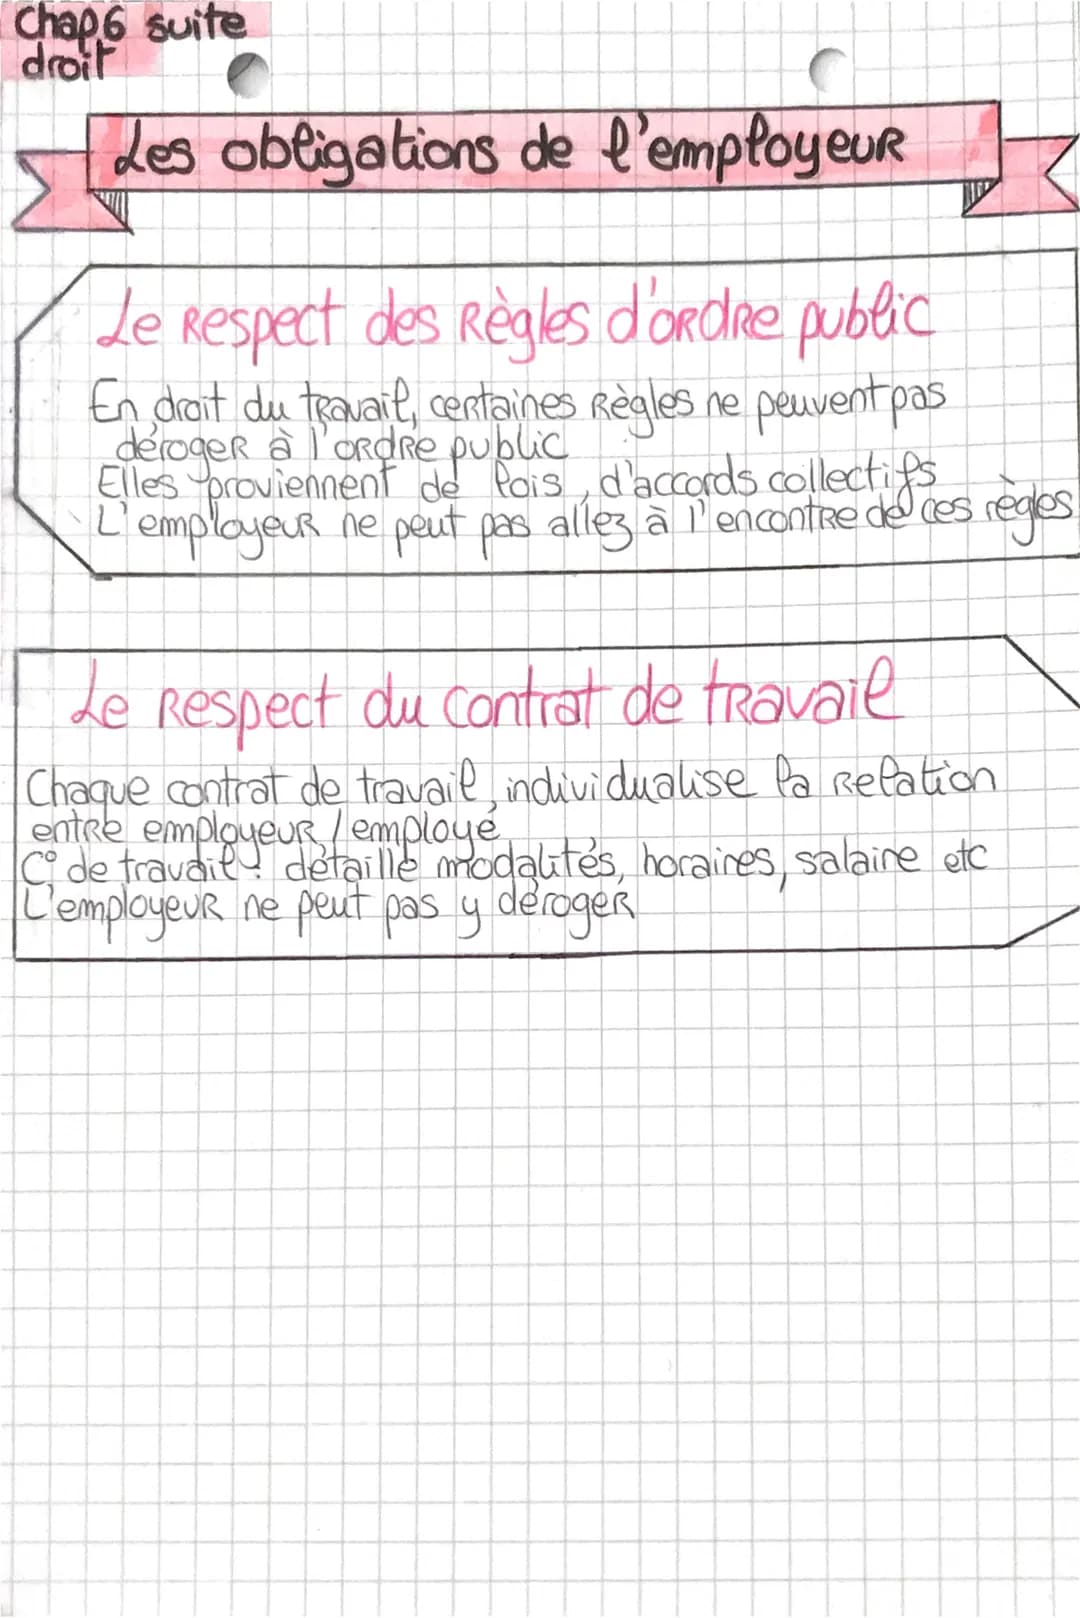 Chap6 suite
droit
Les obligations de l'employeur
Le respect des règles d'ordre public
En droit du travail, certaines règles ne peuvent pas
déroger à l'ordre public
Elles proviennent de lois, d'accords collectifs
L'employeur ne peut pas allez à l'encontre de ces règles
Le respect du contrat de travail
Chaque contrat de travail, individualise la relation
entre employeur / employé
C° de travail : détaille modalités, horaires, salaire etc
L'employeur ne peut pas y déroger